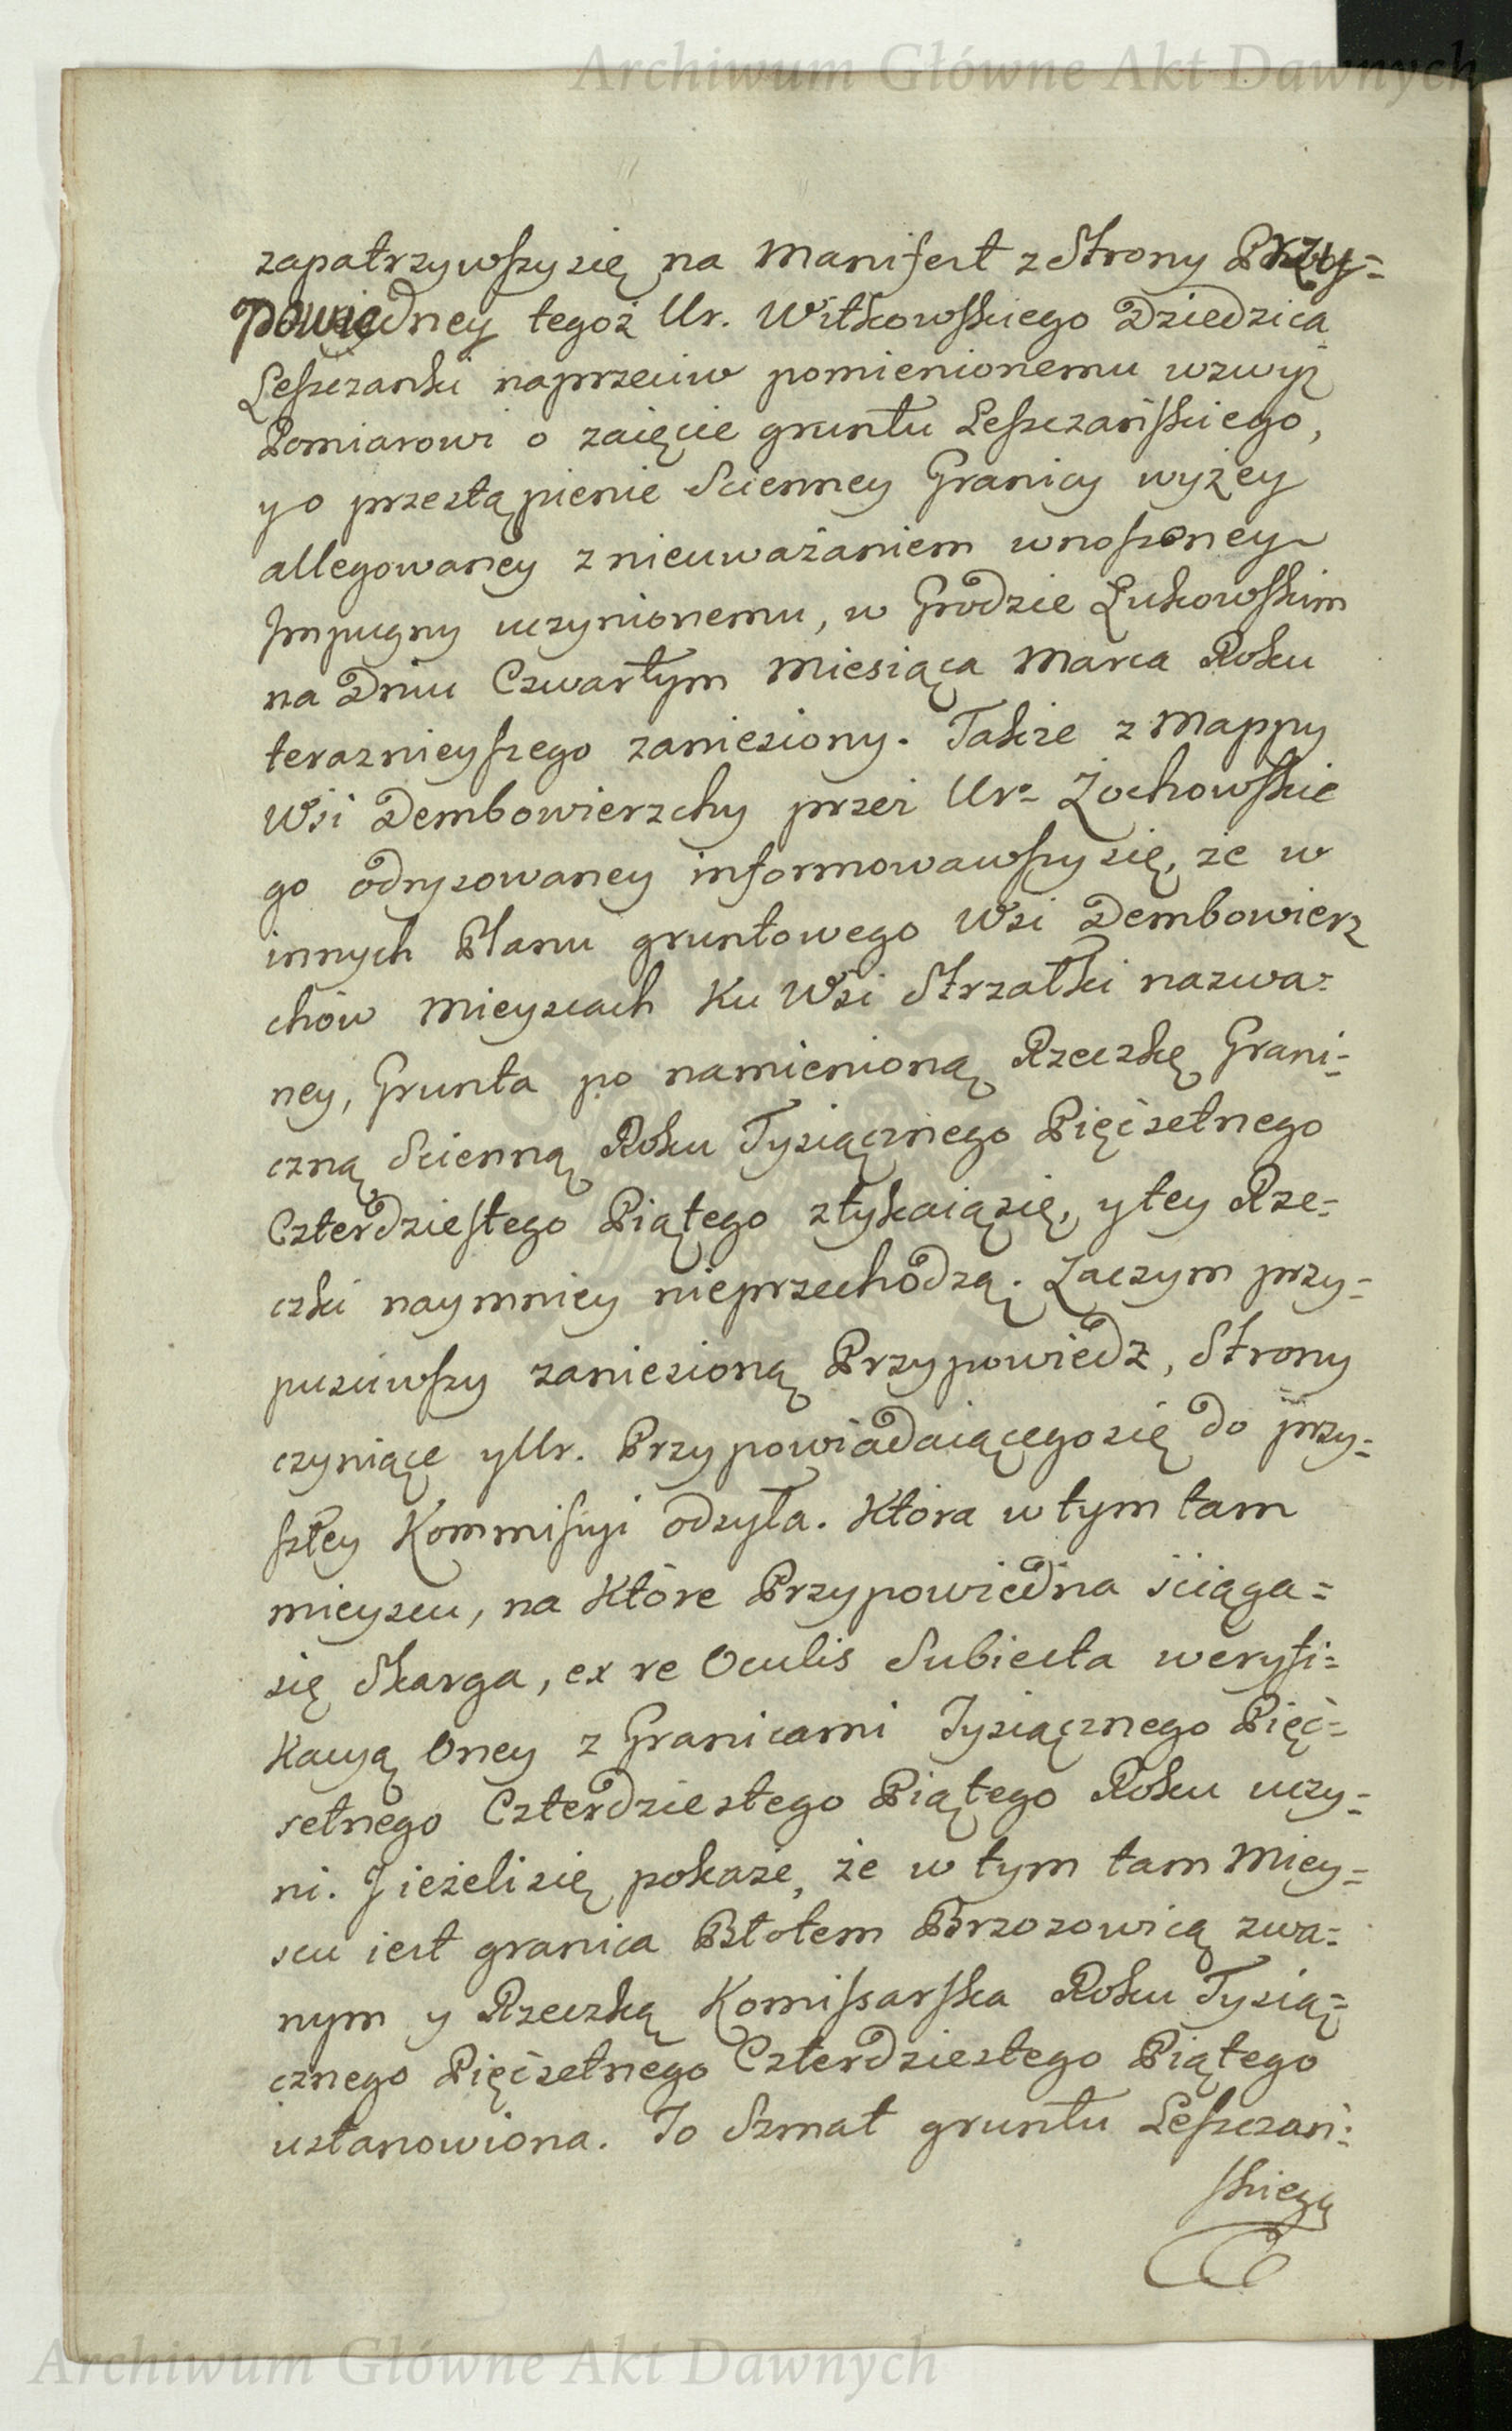 Archiwum Główne Akt Dawnych
zapatrzywszysię na Manifest z Strony Przy=
powiedney tegoż Ur. Witkowskiego Dziedzica
Leszczanki naprzeciw pomienionemu wzwyż
Pomiarowi o zaięcie gruntu Leszczańskiego,
y o przestąpienie Scienney Granicy wyżey
allegowaney z nieuważaniem wnoszoney
Impugny uczynionemu, w Grodzie Łukowskim
na Dniu Czwartym Miesiąca Marca Roku
teraznieyszego zaniesiony. Także z Mappy
Wsi Dembowierzchy przez Ur= Żochowskie
go odrysowaney informowawszy się, że w
innych Planu gruntowego Wsi Dembowierz
chów Mieyscach Ku Wsi Strzałki nazwa=
ney, Grunta po namienioną Rzeczkę Grani=
czną Scienną Roku Tysiącznego Pięćsetnego
Czterdziestego Piątego ztykaiąsię, y tey Rze=
czki naymniey nieprzechodzą. Zaczym przy=
puściwszy zaniesioną Przypowiedz, Strony
czyniące y Ur. Przypowiadaiącegosię do przy=
szłey Kommissyi odsyła. Która w tym tam
mieyscu, na Które Przypowiedna ściąga=
się Skarga, ex re Oculis Subiecta weryfi=
Kacyą Oney z Granicami Tysiącznego Pięć=
setnego Czterdziestego Piątego Roku uczy=
ni. J ieżelisię pokaże, że w tym tam Miey=
scu iest granica Błotem Brzozowicą zwa=
nym y Rzeczką Komissarska Roku Tysią=
cznego Pięćsetnego Czterdziestego Piątego
ustanowiona. To Szmat gruntu Leszczań=
skiego
Archiwum Główne Akt Dawnych